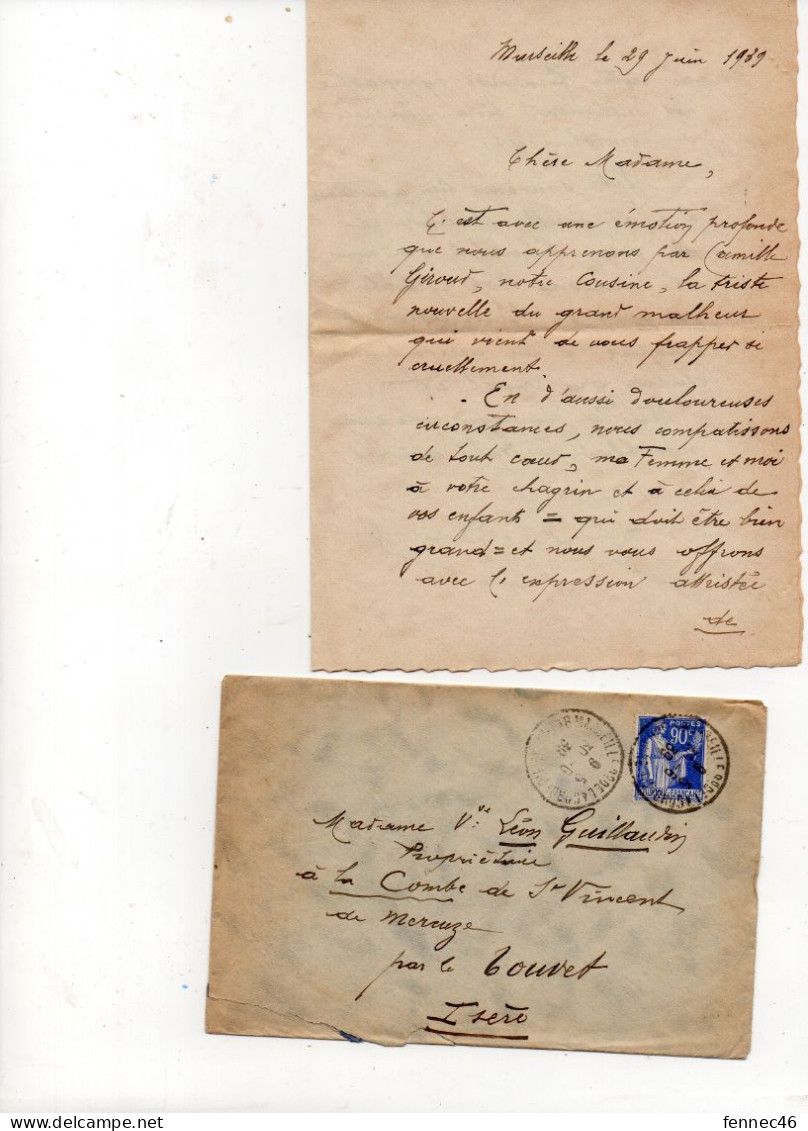 Marseille le 29 Juin 1939
Chère Madame,
C'est avec une émotion profonde
que nous apprenons par Camille
Giroud, notre Cousine, la triste
nouvelle du grand malheur
qui vient de vous frapper si
cruellement.
En d'aussi douloureuses
circonstances, nous compatissons
de tout cœur, ma Femme et moi
à votre chagrin et à celui de
vos enfants = qui doit être bien
grand = et nous vous offrons
avec l'expression attristée
de
POSTES
90c
Madame Vve Léon Guillaudin
Propriétaire
à la Combe de St Vincent
de Mercuze
par le Touvet
Isère
fennec46